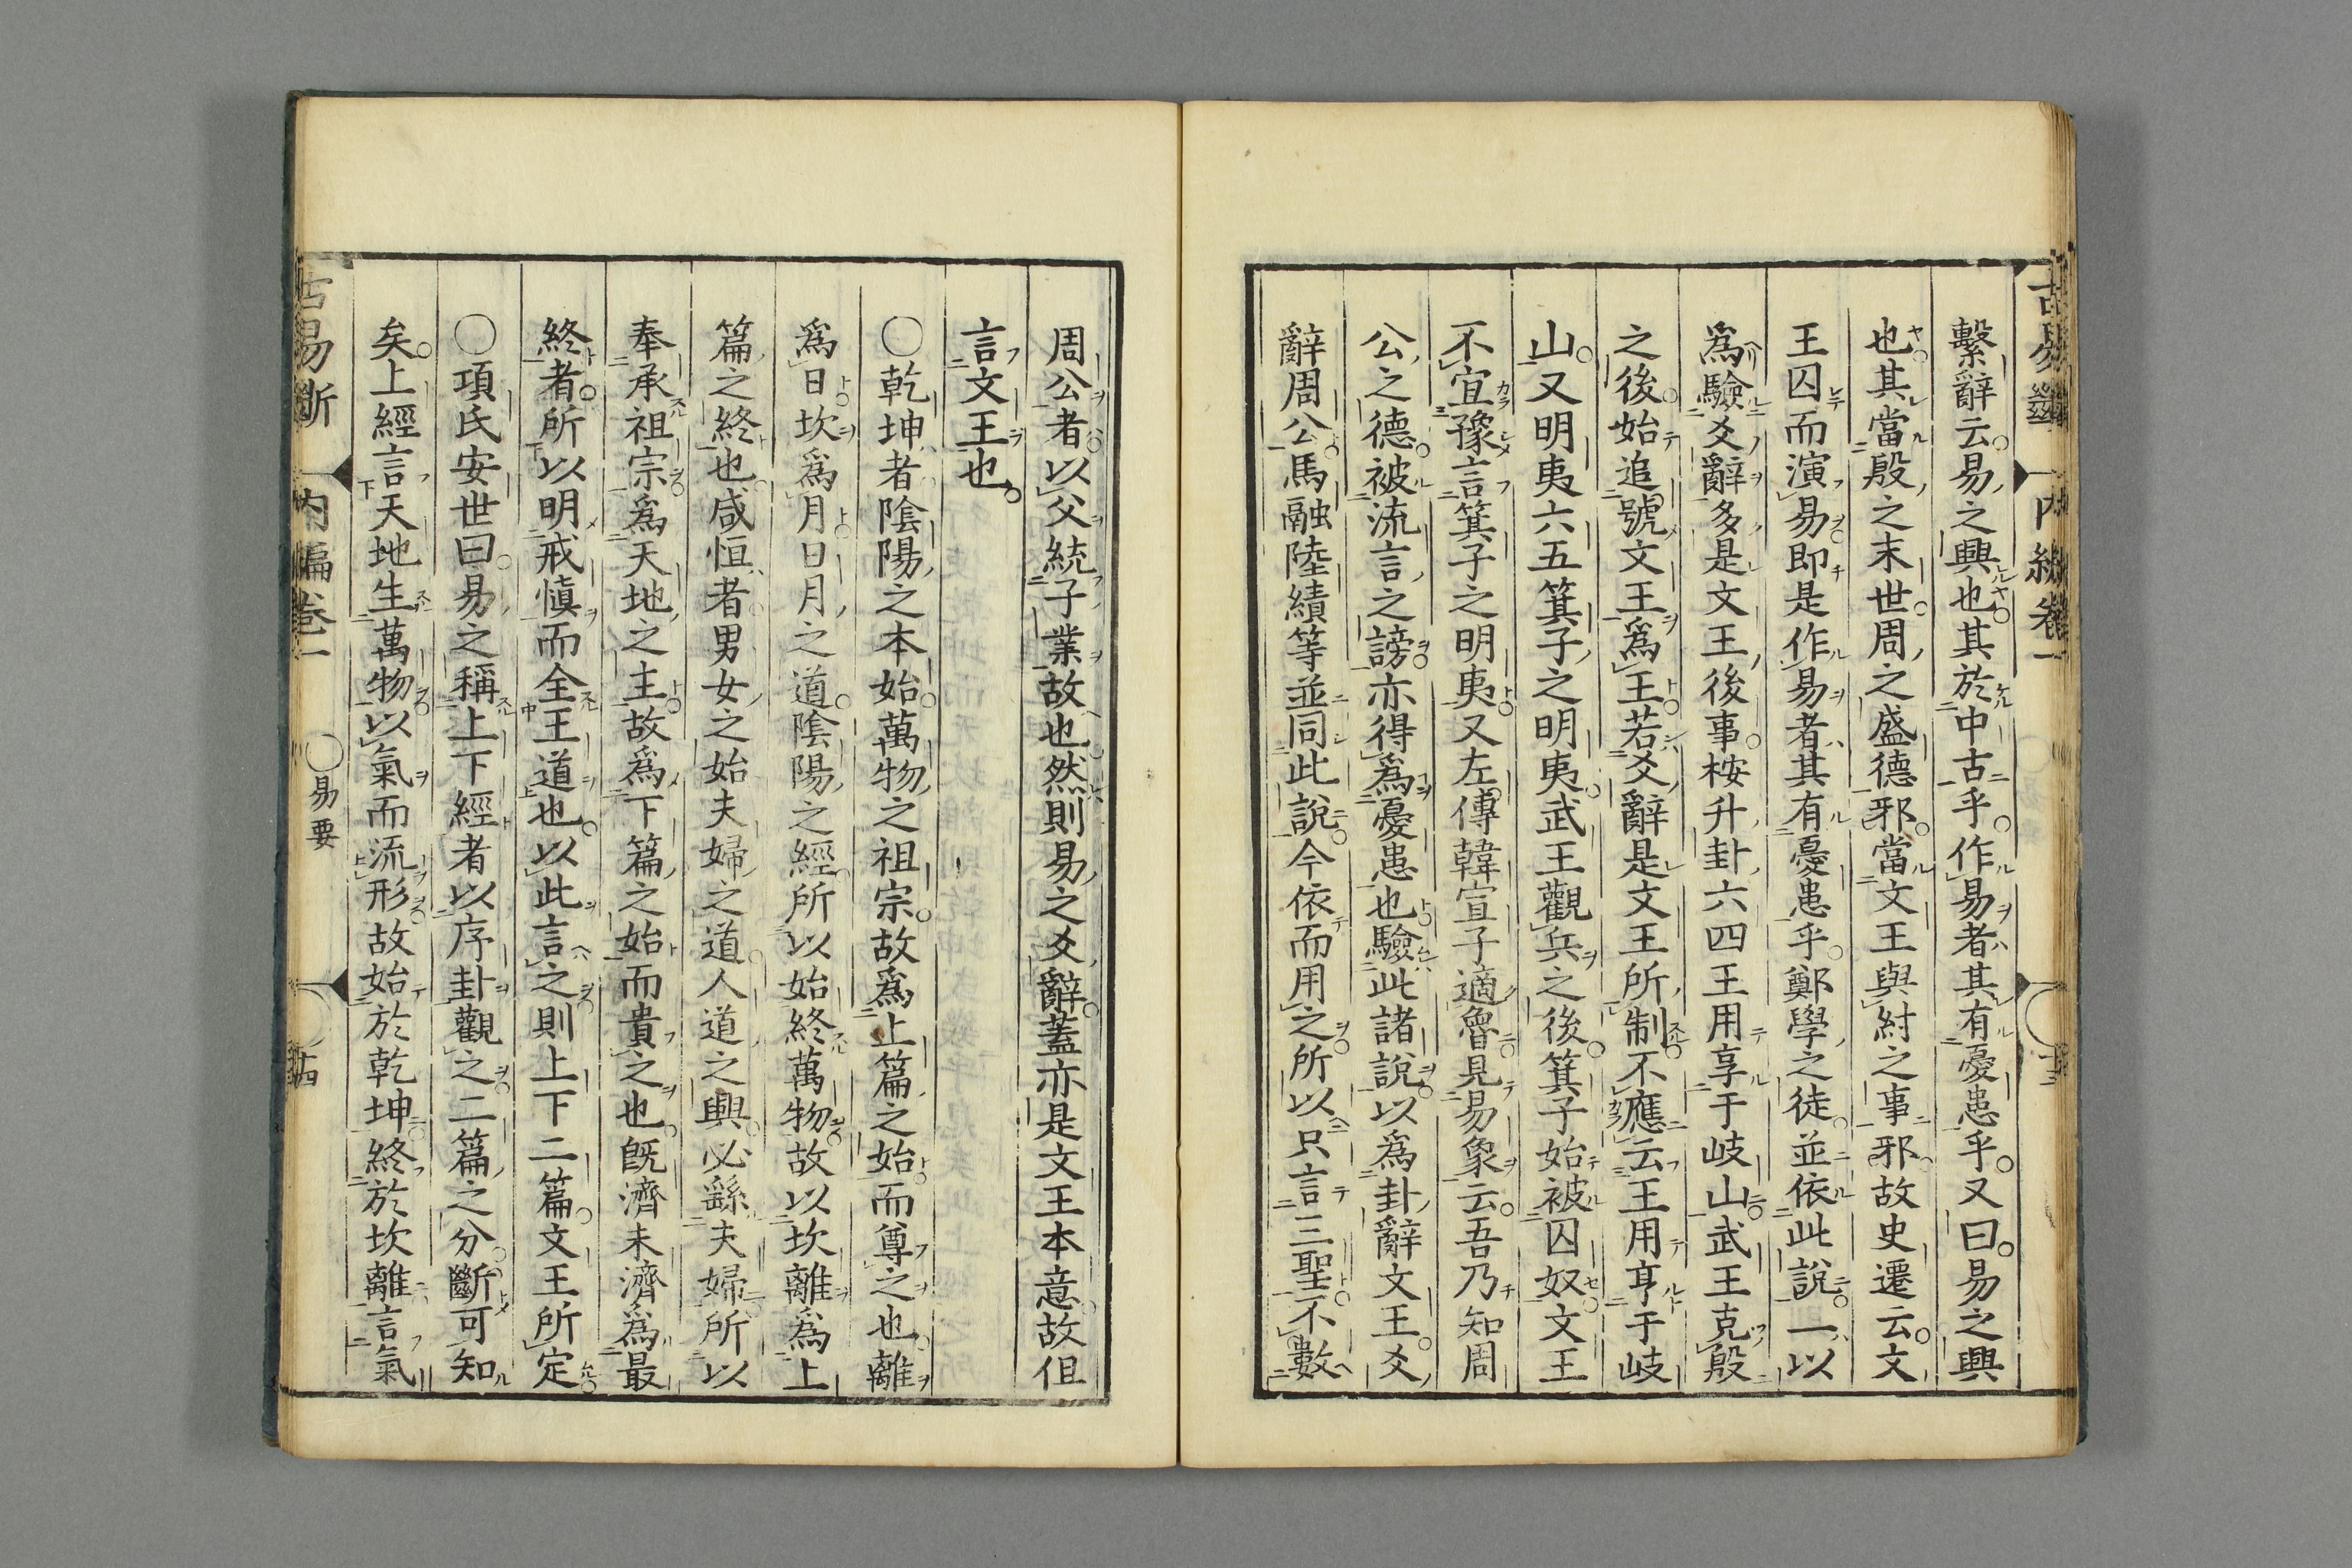 繫辭云易之興也其於中古乎作易者其有憂患乎又曰易之興
也其當殷之末世周之盛德邪當文王與紂之事邪故史遷云文
王囚而演易即是作易者其有憂患乎鄭學之徒並依此說一以
爲驗爻辭多是文王後事桉升卦六四王用享于岐山武王克殷
之後始追號文王爲王若爻辭是文王所制不應云王用亨于岐
山又明夷六五箕子之明夷武王觀兵之後箕子始被囚奴文王
不宜豫言箕子之明夷又左傳韓宣子適魯見易象云吾乃知周
公之德被流言之謗亦得爲憂患也驗此諸說以爲卦辭文王爻
辭周公馬融陸績等並同此說今依而用之所以只言三聖不數
周公者以父統子業故也然則易之爻辭蓋亦是文王本意故但
言文王也
〇乾坤者陰陽之本始萬物之祖宗故爲上篇之始而尊之也離
爲日坎爲月日月之道陰陽之經所以始終萬物故以坎離爲上
篇之終也咸恒者男女之始夫婦之道人道之興必繇夫婦所以
奉承祖宗爲天地之主故爲下篇之始而貴之也既濟未濟爲最
終者所以明戒愼而全王道也以此言之則上下二篇文王所定
〇項氏安世曰易之稱上下經者以序卦觀之二篇之分斷可知
矣上經言天地生萬物以氣而流形故始於乾坤終於坎離言氣
古易斷 内編卷一 〇易要 十四